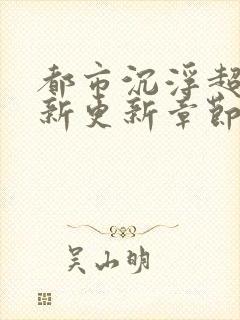 都市沉浮超
新更新章節
吴山明